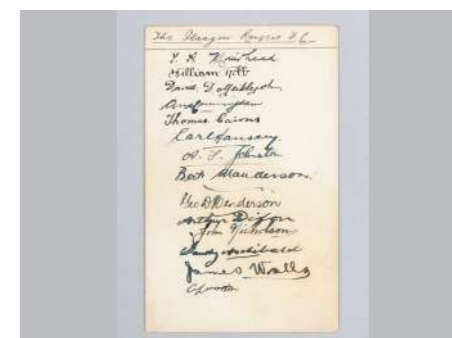 The Glasgow Rangers F.C.
T. A. Muirhead
William Robb
David. D Meiklejohn
And Cunningham
Thomas. Cairns
Carl Hansen
A. F. Johnston
Bert Manderson.
Geo D Henderson
Arthur Dixon
Tom Nicholson
Sandy Archibald
James Walls